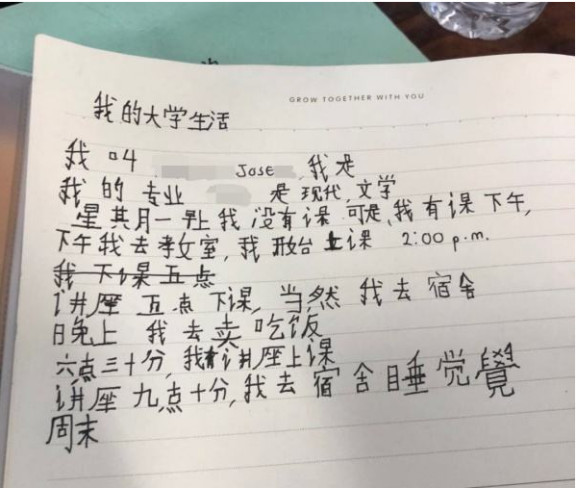 GROW TOGETHER WITH YOU
我的大学生活
我叫 Jose,我是
我的专业 是现代,文学
星期一早上我没有课 可是,我有课下午,
下午我去教室,我开始上课 2:00 p.m.
我下课五点
讲座五点下课,当然我去宿舍
日晚上 我去卖吃饭
六点三十分,我有讲座上课
讲座九点十分,我去宿舍睡觉覺
周末